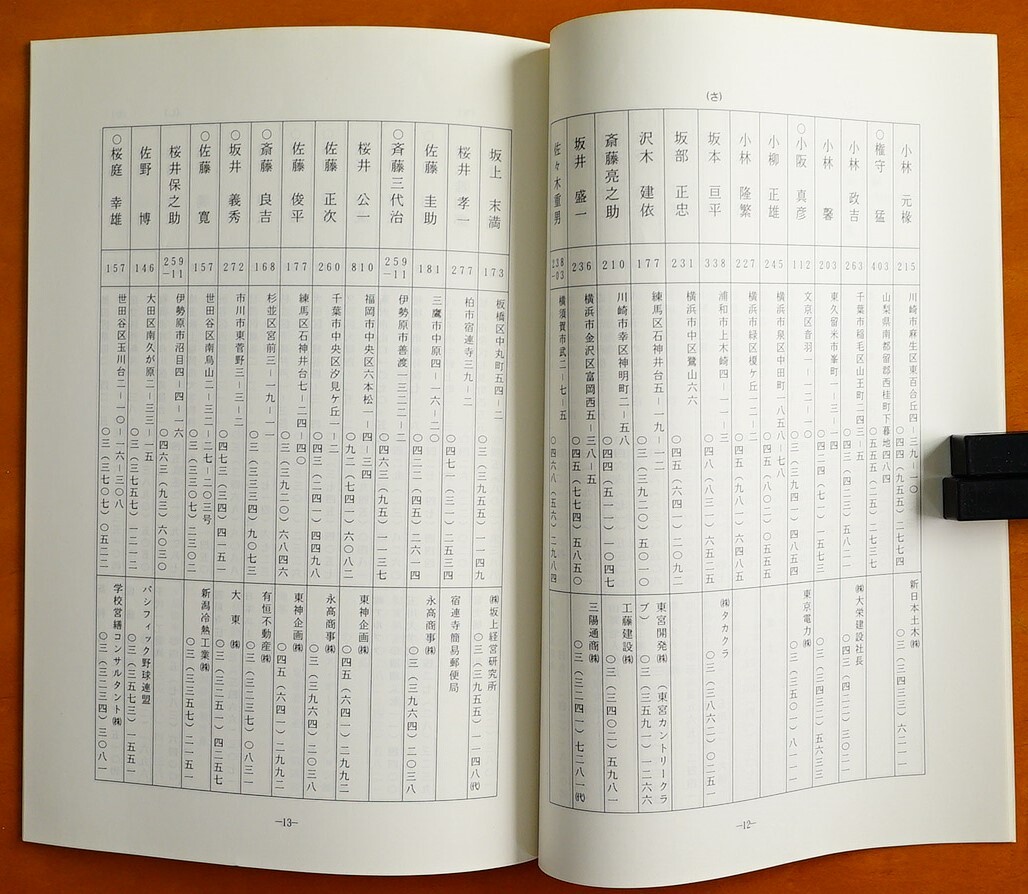 (さ)
小林 元椽
215
川崎市麻生区東百合丘四-三九-一〇
〇四四(九五五)二七七四
新日本土木㈱
〇三(三四三三)六二一一
○権守 猛
403
山梨県南都留郡西桂町下暮地四八四
〇五五五(二五)二七三七
小林 政吉
263
千葉市稲毛区山王町二四三-五
〇四三(四二二)三五八二
㈱大栄建設社長
〇四三(四二二)三〇二一
小林 馨
203
東久留米市氷川台一-三-一四
〇四二四(七一)一五七三
〇三(三四三二)五六三三
○小阪 真彦
112
文京区音羽一-一二-一〇
〇三(三九四一)四八五四
東京電力㈱
〇三(三五〇一)八一一一
小柳 正雄
245
横浜市泉区中田町一八五八-七八
〇四五(八〇二)〇五五五
小林 隆繁
227
横浜市緑区榎ケ丘一二-二
〇四五(九八一)六四八五
坂本 亘平
338
浦和市上木崎四-一一-三
〇四八(八三一)六五二五
㈱タカクラ
〇三(三八六二)〇二五一
坂部 正忠
231
横浜市中区鷺山六六
〇四五(六四一)二〇九二
沢木 建依
177
練馬区石神井台五-一九-一二
〇三(三九二〇)五〇一〇
東宮開発㈱(東宮カントリークラブ)
〇三(三五九一)一二六六
斎藤亮之助
210
川崎市幸区神明町二-五八
〇四四(五一一)一〇四七
工藤建設㈱
〇三(三四〇二)五九八一
坂井 盛一
236
横浜市金沢区富岡西五-三八-五
〇四五(七七四)五八五〇
三陽通商㈱
〇三(三二四一)七二八一㈹
佐々木重男
238-03
横須賀市武二-七-五
〇四六八(五六)二九八四
—12—
坂上 末満
173
板橋区中丸町五四-二
〇三(三九五五)一一四九
㈱坂上経営研究所
〇三(三九五五)一一四八㈹
桜井 孝一
277
柏市宿連寺三九-二
〇四七一(三一)二五三四
宿連寺簡易郵便局
佐藤 圭助
181
三鷹市中原四-一六-二〇
〇四二二(四五)二六一四
永高商事㈱
〇三(三九六四)二〇三八
○斉藤三代治
259-11
伊勢原市善波一三二二-二
〇四六三(九五)一一三七
桜井 公一
810
福岡市中央区六本松一-四-三四
〇九二(七四一)六〇八二
東神企画㈱
〇四五(六四一)二九九二
佐藤 正次
260
千葉市中央区汐見ケ丘一-二
〇四三(二四一)四四九八
永高商事㈱
〇三(三九六四)二〇三八
佐藤 俊平
177
練馬区石神井台七-二四-四〇
〇三(三九二〇)六八四六
東神企画㈱
〇四五(六四一)二九九二
○斎藤 良吉
168
杉並区宮前三-一九-一
〇三(三三三四)九〇七三
有恒不動産㈱
〇三(三二三七)〇八三一
○坂井 義秀
272
市川市東菅野三-三-二
〇四七三(三四)四一五一
大東㈱
〇三(三二五一)四二五七
○佐藤 寛
157
世田谷区南烏山二-三二-二七-二〇三号
〇三(三三〇七)二三〇二
新潟冷熱工業㈱
〇三(三三五七)二一五一
桜井保之助
259-11
伊勢原市沼目四-四-一六
〇四六三(九三)六〇三〇
佐野 博
146
大田区南久が原二-三三-一五
〇三(三七五七)二一一二
パシフィック野球連盟
〇三(三五七三)一五五一
○桜庭 幸雄
157
世田谷区玉川台二-一〇-一六-三〇八
〇三(三七〇七)〇五二二
学校営繕コンサルタント㈱
〇三(三二三四)三〇八一
—13—